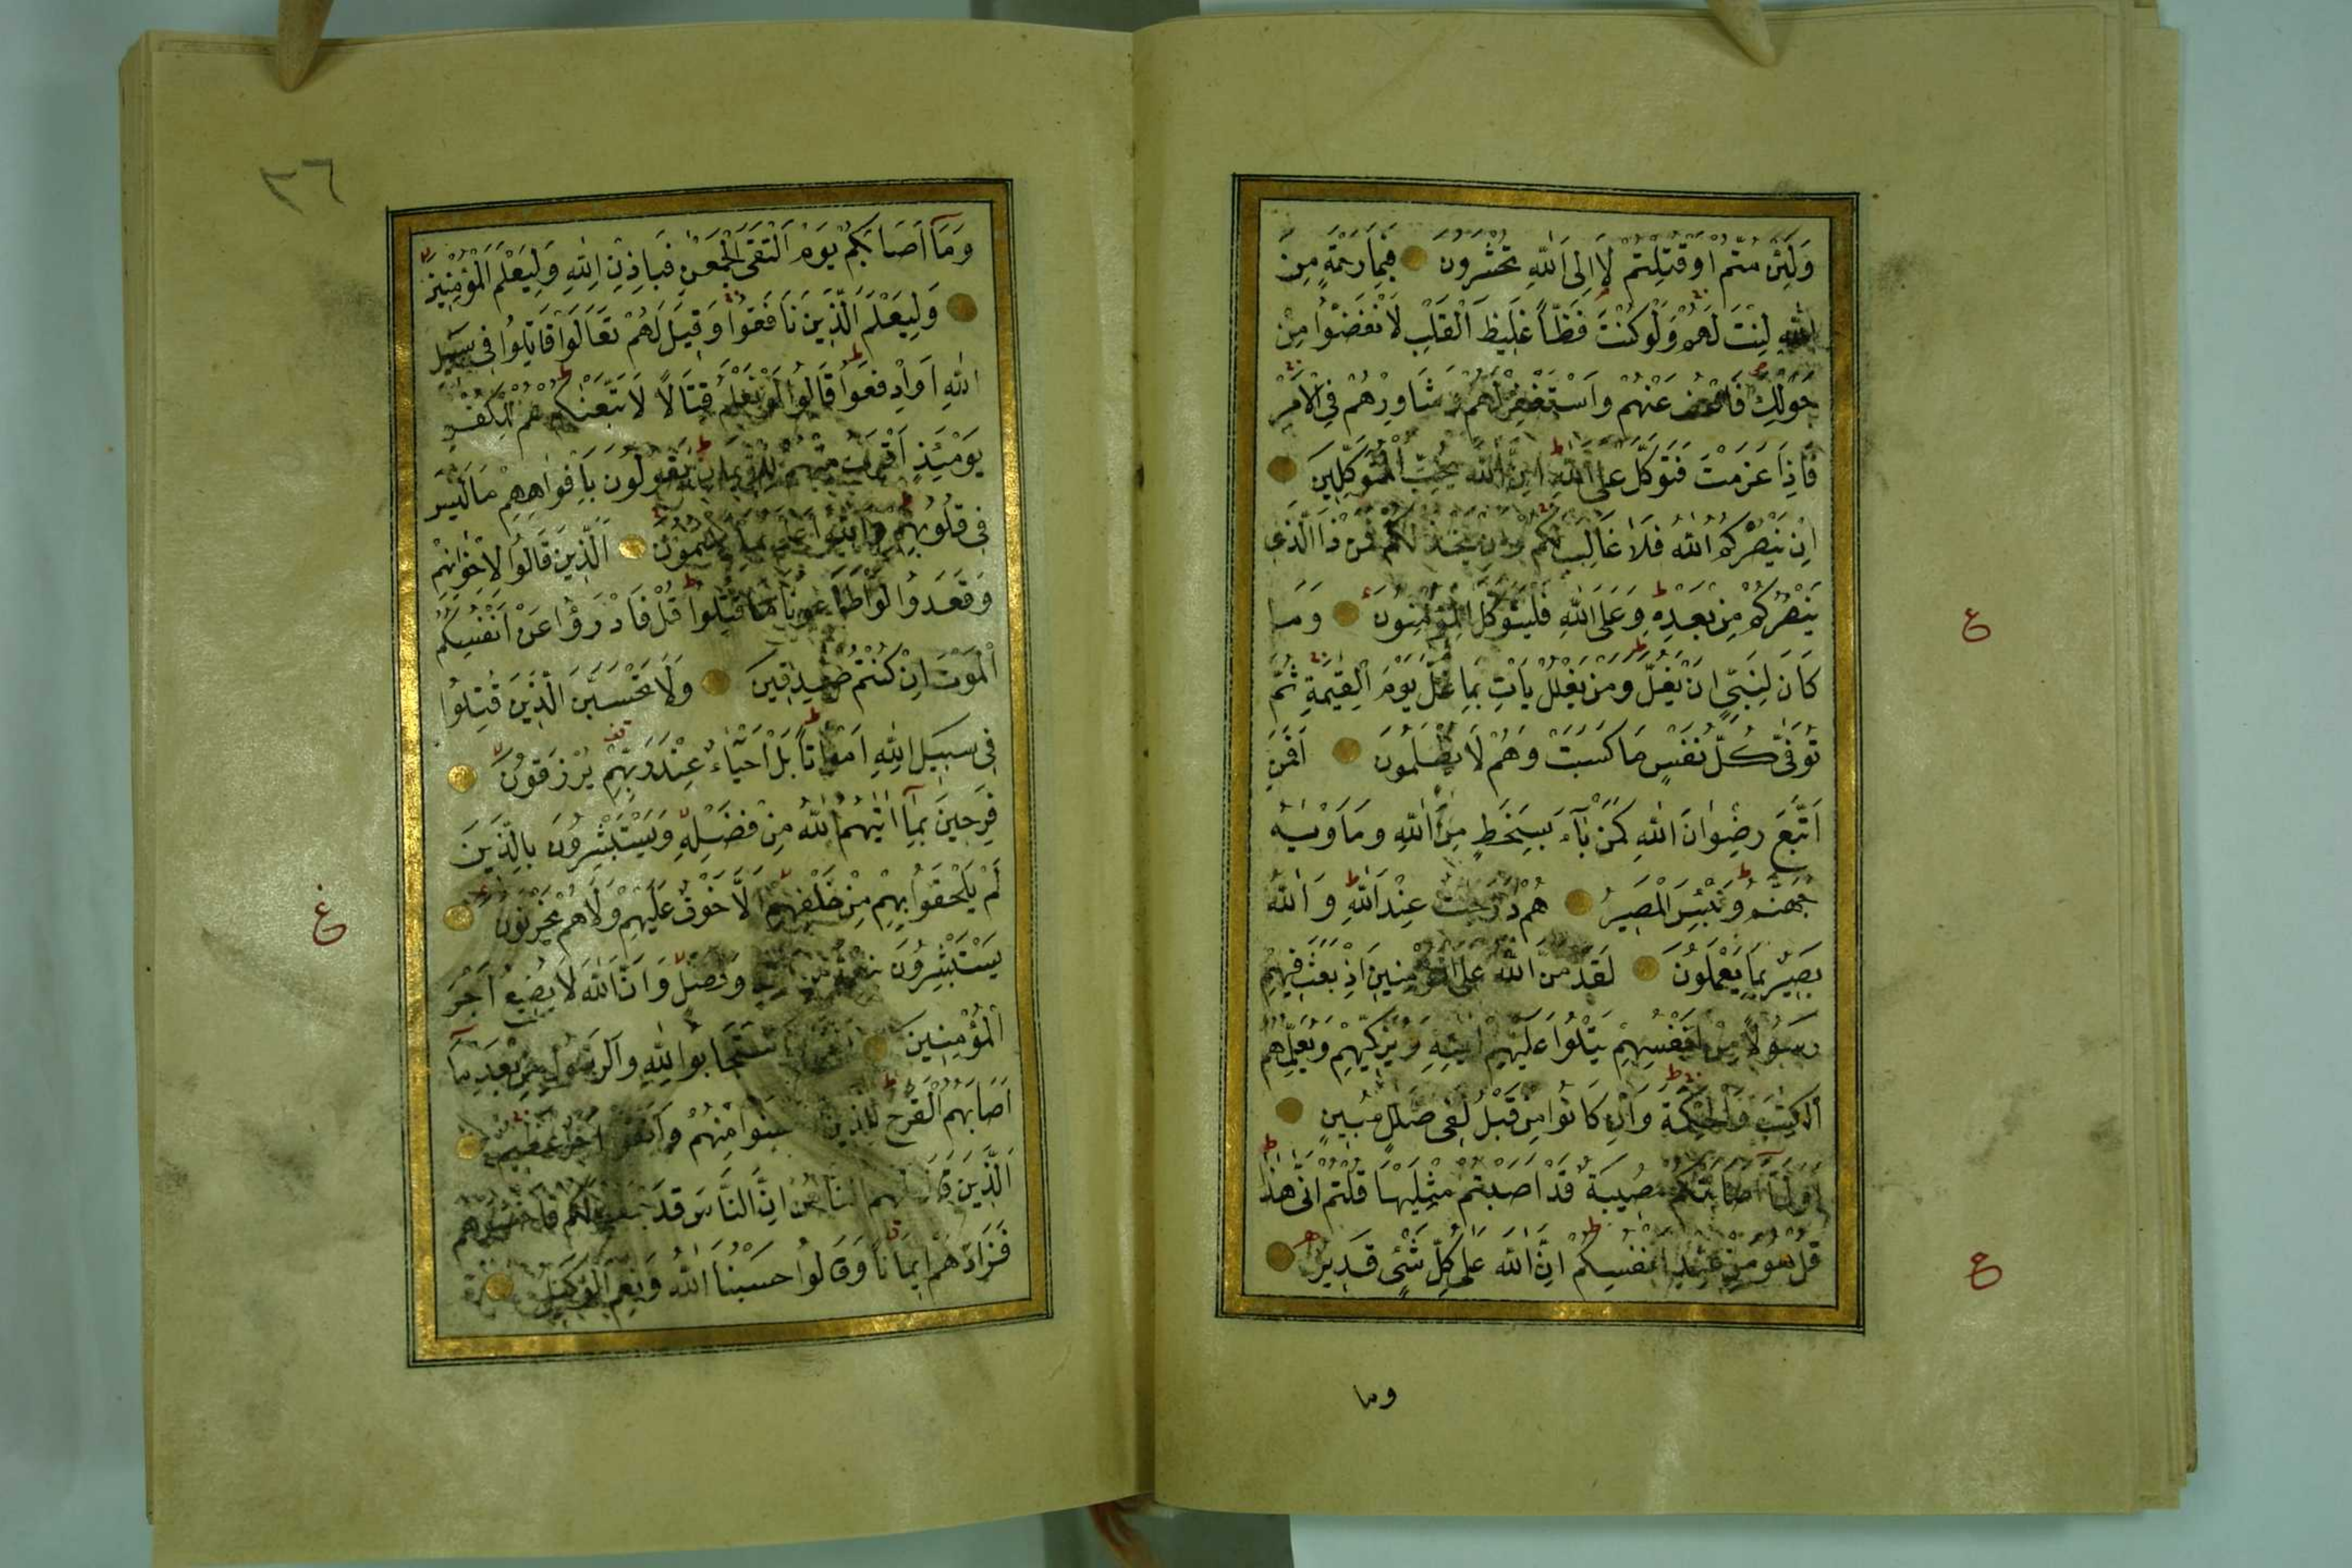 وَلَئِنْ مُتُّمْ اَوْ قُتِلْتُمْ لَاِالَى اللّٰهِ تُحْشَرُونَ فَبِمَا رَحْمَةٍ مِنَ
اللّٰهِ لِنْتَ لَهُمْ وَلَوْ كُنْتَ فَظًّا غَلِيظَ الْقَلْبِ لَانْفَضُّوا مِنْ
حَوْلِكَ فَاعْفُ عَنْهُمْ وَاسْتَغْفِرْ لَهُمْ وَشَاوِرْهُمْ فِى الْاَمْرِ
فَاِذَا عَزَمْتَ فَتَوَكَّلْ عَلَى اللّٰهِ اِنَّ اللّٰهَ يُحِبُّ الْمُتَوَكِّلِينَ
اِنْ يَنْصُرْكُمُ اللّٰهُ فَلَا غَالِبَ لَكُمْ وَاِنْ يَخْذُلْكُمْ فَمَنْ ذَا الَّذِى
يَنْصُرُكُمْ مِنْ بَعْدِهِ وَعَلَى اللّٰهِ فَلْيَتَوَكَّلِ الْمُؤْمِنُونَ وَمَا
كَانَ لِنَبِىٍّ اَنْ يَغُلَّ وَمَنْ يَغْلُلْ يَاْتِ بِمَا غَلَّ يَوْمَ الْقِيٰمَةِ ثُمَّ
تُوَفّٰى كُلُّ نَفْسٍ مَا كَسَبَتْ وَهُمْ لَا يُظْلَمُونَ اَفَمَنِ
اتَّبَعَ رِضْوَانَ اللّٰهِ كَمَنْ بَاۤءَ بِسَخَطٍ مِنَ اللّٰهِ وَمَاْوٰيهُ
جَهَنَّمُ وَبِئْسَ الْمَصِيرُ هُمْ دَرَجَاتٌ عِنْدَ اللّٰهِ وَاللّٰهُ
بَصِيرٌ بِمَا يَعْمَلُونَ لَقَدْ مَنَّ اللّٰهُ عَلَى الْمُؤْمِنِينَ اِذْ بَعَثَ فِيهِمْ
رَسُولًا مِنْ اَنْفُسِهِمْ يَتْلُوا عَلَيْهِمْ اٰيٰتِهِ وَيُزَكِّيهِمْ وَيُعَلِّمُهُمُ
الْكِتٰبَ وَالْحِكْمَةَ وَاِنْ كَانُوا مِنْ قَبْلُ لَفِى ضَلٰلٍ مُبِينٍ
اَوَلَمَّاۤ اَصَابَتْكُمْ مُصِيبَةٌ قَدْ اَصَبْتُمْ مِثْلَيْهَا قُلْتُمْ اَنّٰى هٰذَا
قُلْ هُوَ مِنْ عِنْدِ اَنْفُسِكُمْ اِنَّ اللّٰهَ عَلٰى كُلِّ شَىْءٍ قَدِيرٌ
وما
ع
ع
٢٦
وَمَاۤ اَصَابَكُمْ يَوْمَ الْتَقَى الْجَمْعٰنِ فَبِاِذْنِ اللّٰهِ وَلِيَعْلَمَ الْمُؤْمِنِينَ
وَلِيَعْلَمَ الَّذِينَ نَافَقُوا وَقِيلَ لَهُمْ تَعَالَوْا قَاتِلُوا فِى سَبِيلِ
اللّٰهِ اَوِ ادْفَعُوا قَالُوا لَوْ نَعْلَمُ قِتَالًا لَاتَّبَعْنٰكُمْ هُمْ لِلْكُفْرِ
يَوْمَئِذٍ اَقْرَبُ مِنْهُمْ لِلْاِيمَانِ يَقُولُونَ بِاَفْوَاهِهِمْ مَا لَيْسَ
فِى قُلُوبِهِمْ وَاللّٰهُ اَعْلَمُ بِمَا يَكْتُمُونَ اَلَّذِينَ قَالُوا لِاِخْوَانِهِمْ
وَقَعَدُوا لَوْ اَطَاعُونَا مَا قُتِلُوا قُلْ فَادْرَؤُا عَنْ اَنْفُسِكُمُ
الْمَوْتَ اِنْ كُنْتُمْ صٰدِقِينَ وَلَا تَحْسَبَنَّ الَّذِينَ قُتِلُوا
فِى سَبِيلِ اللّٰهِ اَمْوَاتًا بَلْ اَحْيَاۤءٌ عِنْدَ رَبِّهِمْ يُرْزَقُونَ
فَرِحِينَ بِمَاۤ اٰتٰيهُمُ اللّٰهُ مِنْ فَضْلِهِ وَيَسْتَبْشِرُونَ بِالَّذِينَ
لَمْ يَلْحَقُوا بِهِمْ مِنْ خَلْفِهِمْ اَلَّا خَوْفٌ عَلَيْهِمْ وَلَا هُمْ يَحْزَنُونَ
يَسْتَبْشِرُونَ بِنِعْمَةٍ مِنَ اللّٰهِ وَفَضْلٍ وَاَنَّ اللّٰهَ لَا يُضِيعُ اَجْرَ
الْمُؤْمِنِينَ اسْتَجَابُوا لِلّٰهِ وَالرَّسُولِ مِنْ بَعْدِ مَاۤ
اَصَابَهُمُ الْقَرْحُ لِلَّذِينَ مِنْهُمْ وَاتَّقَوْا اَجْرٌ عَظِيمٌ
اَلَّذِينَ قَالَ لَهُمُ النَّاسُ اِنَّ النَّاسَ قَدْ جَمَعُوا لَكُمْ فَاخْشَوْهُمْ
فَزَادَهُمْ اِيمَانًا وَقَالُوا حَسْبُنَا اللّٰهُ وَنِعْمَ الْوَكِيلُ
ع